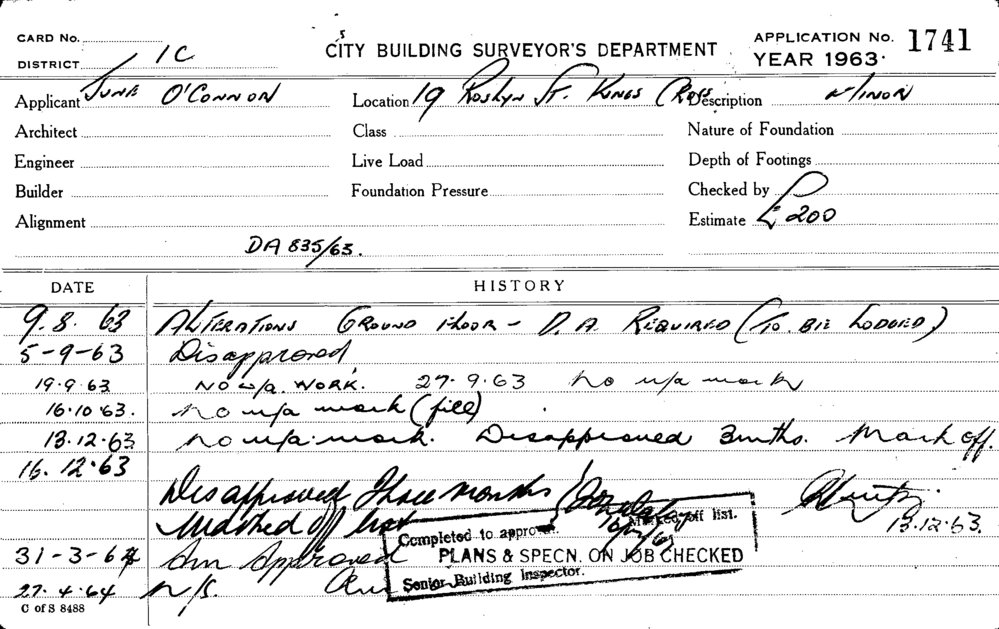 CARD No.
DISTRICT 1C
CITY BUILDING SURVEYOR'S DEPARTMENT
APPLICATION No. 1741
YEAR 1963.
Applicant June O'Connor
Location 19 Roslyn St. Kings Cross
Description Minor
Architect
Class
Nature of Foundation
Engineer
Live Load
Depth of Footings
Builder
Foundation Pressure
Checked by
Alignment
Estimate £200
DA 835/63.
DATE
HISTORY
9.8.63 Alterations Ground Floor - D.A. Required (To be Lodged)
5-9-63 Disapproved
19.9.63 No u/a. work. 27.9.63 No u/a work
16.10.63. No u/a work (file)
13.12.63 No u/a. work. Disapproved 3 mths. Mark off.
16.12.63
Disapproved Three months
Marked off list
13.12.63.
Completed to approval. Marked off list.
PLANS & SPECN. ON JOB CHECKED
Senior Building Inspector.
31-3-64 Approved
27.4.64 N/S.
C of S 8488